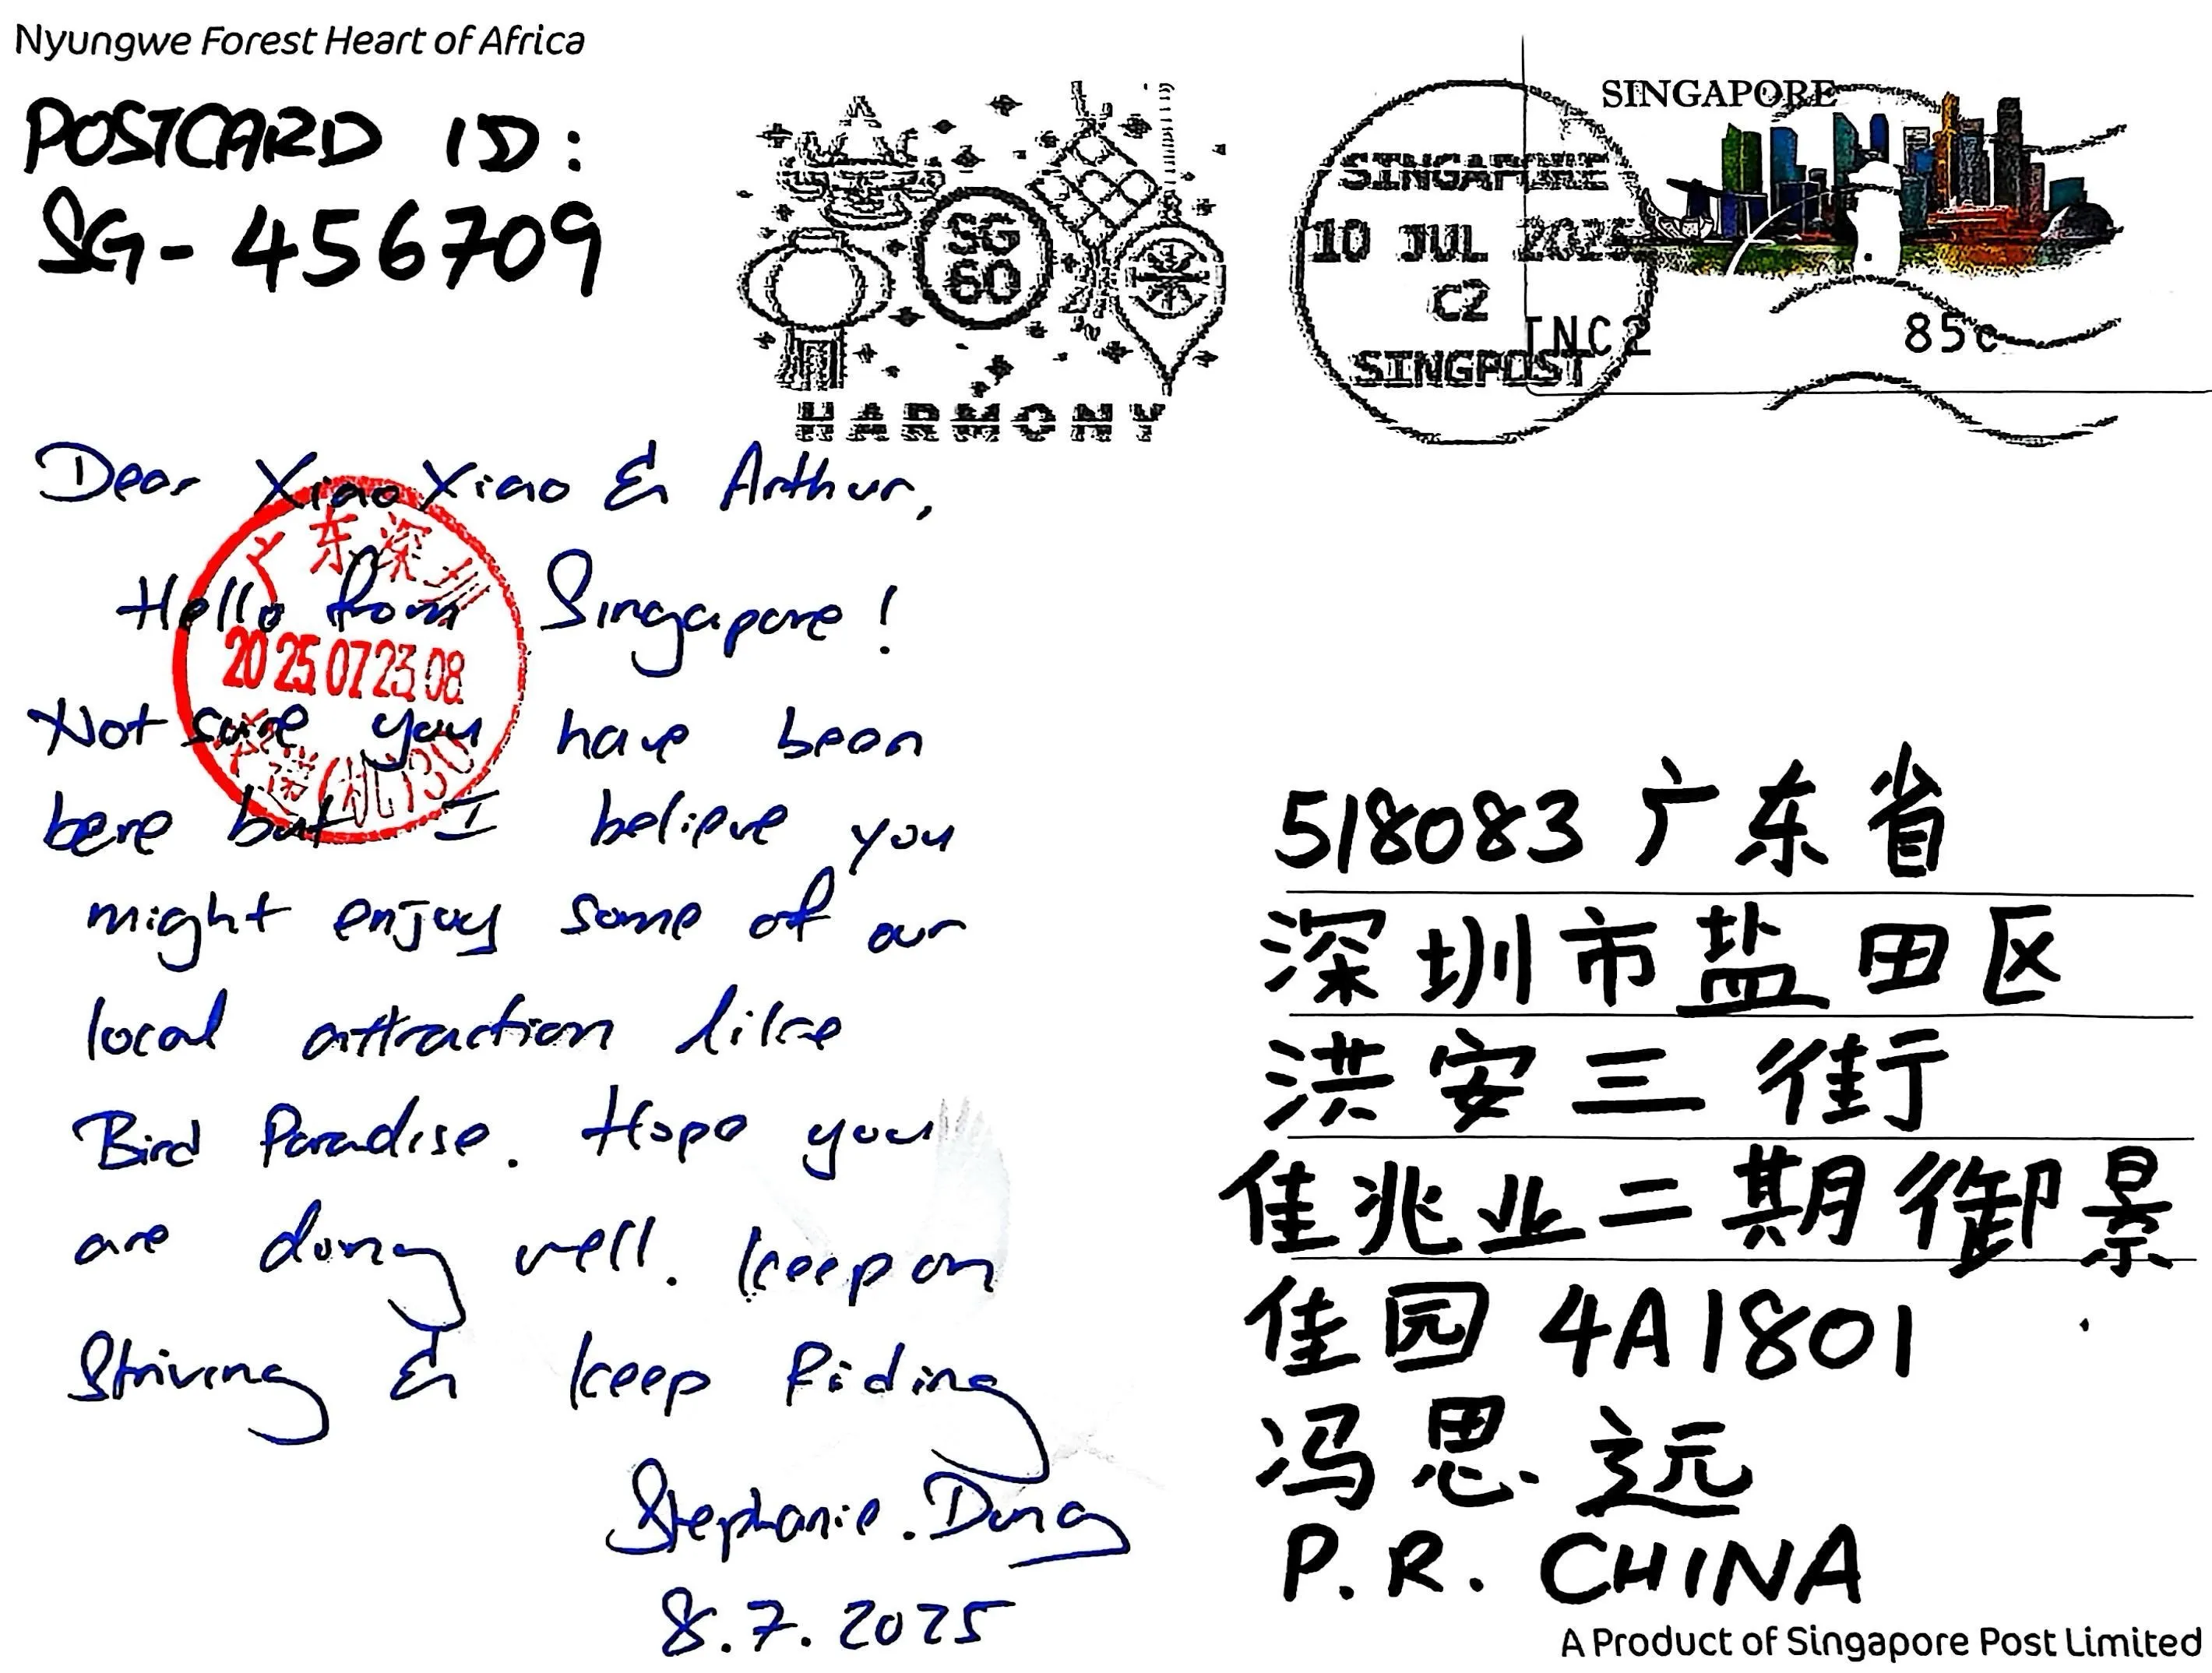 Nyungwe Forest Heart of Africa
POSTCARD ID:
SG-456709
SG
60
HARMONY
SINGAPORE
10 JUL 2025
C2
SINGPOST
TNC2
SINGAPORE
85c
Dear XiaoXiao & Arthur,
Hello from Singapore!
Not sure you have been
here but I believe you
might enjoy some of our
local attraction like
Bird Paradise. Hope you
are doing well. Keep on
Striving & keep Riding
Stephanie. Dong
8.7.2025
广东深圳
2025072308
518083 广东省
深圳市盐田区
洪安三街
佳兆业二期御景
佳园 4A1801
冯思远
P.R. CHINA
A Product of Singapore Post Limited